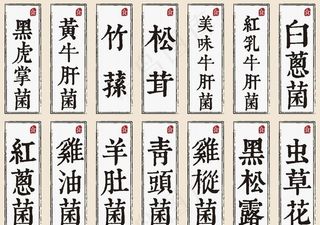 黑虎掌菌
黃牛肝菌
竹蓀
松茸
美味牛肝菌
紅乳牛肝菌
白蔥菌
紅蔥菌
雞油菌
羊肚菌
青頭菌
雞樅菌
黑松露
虫草花